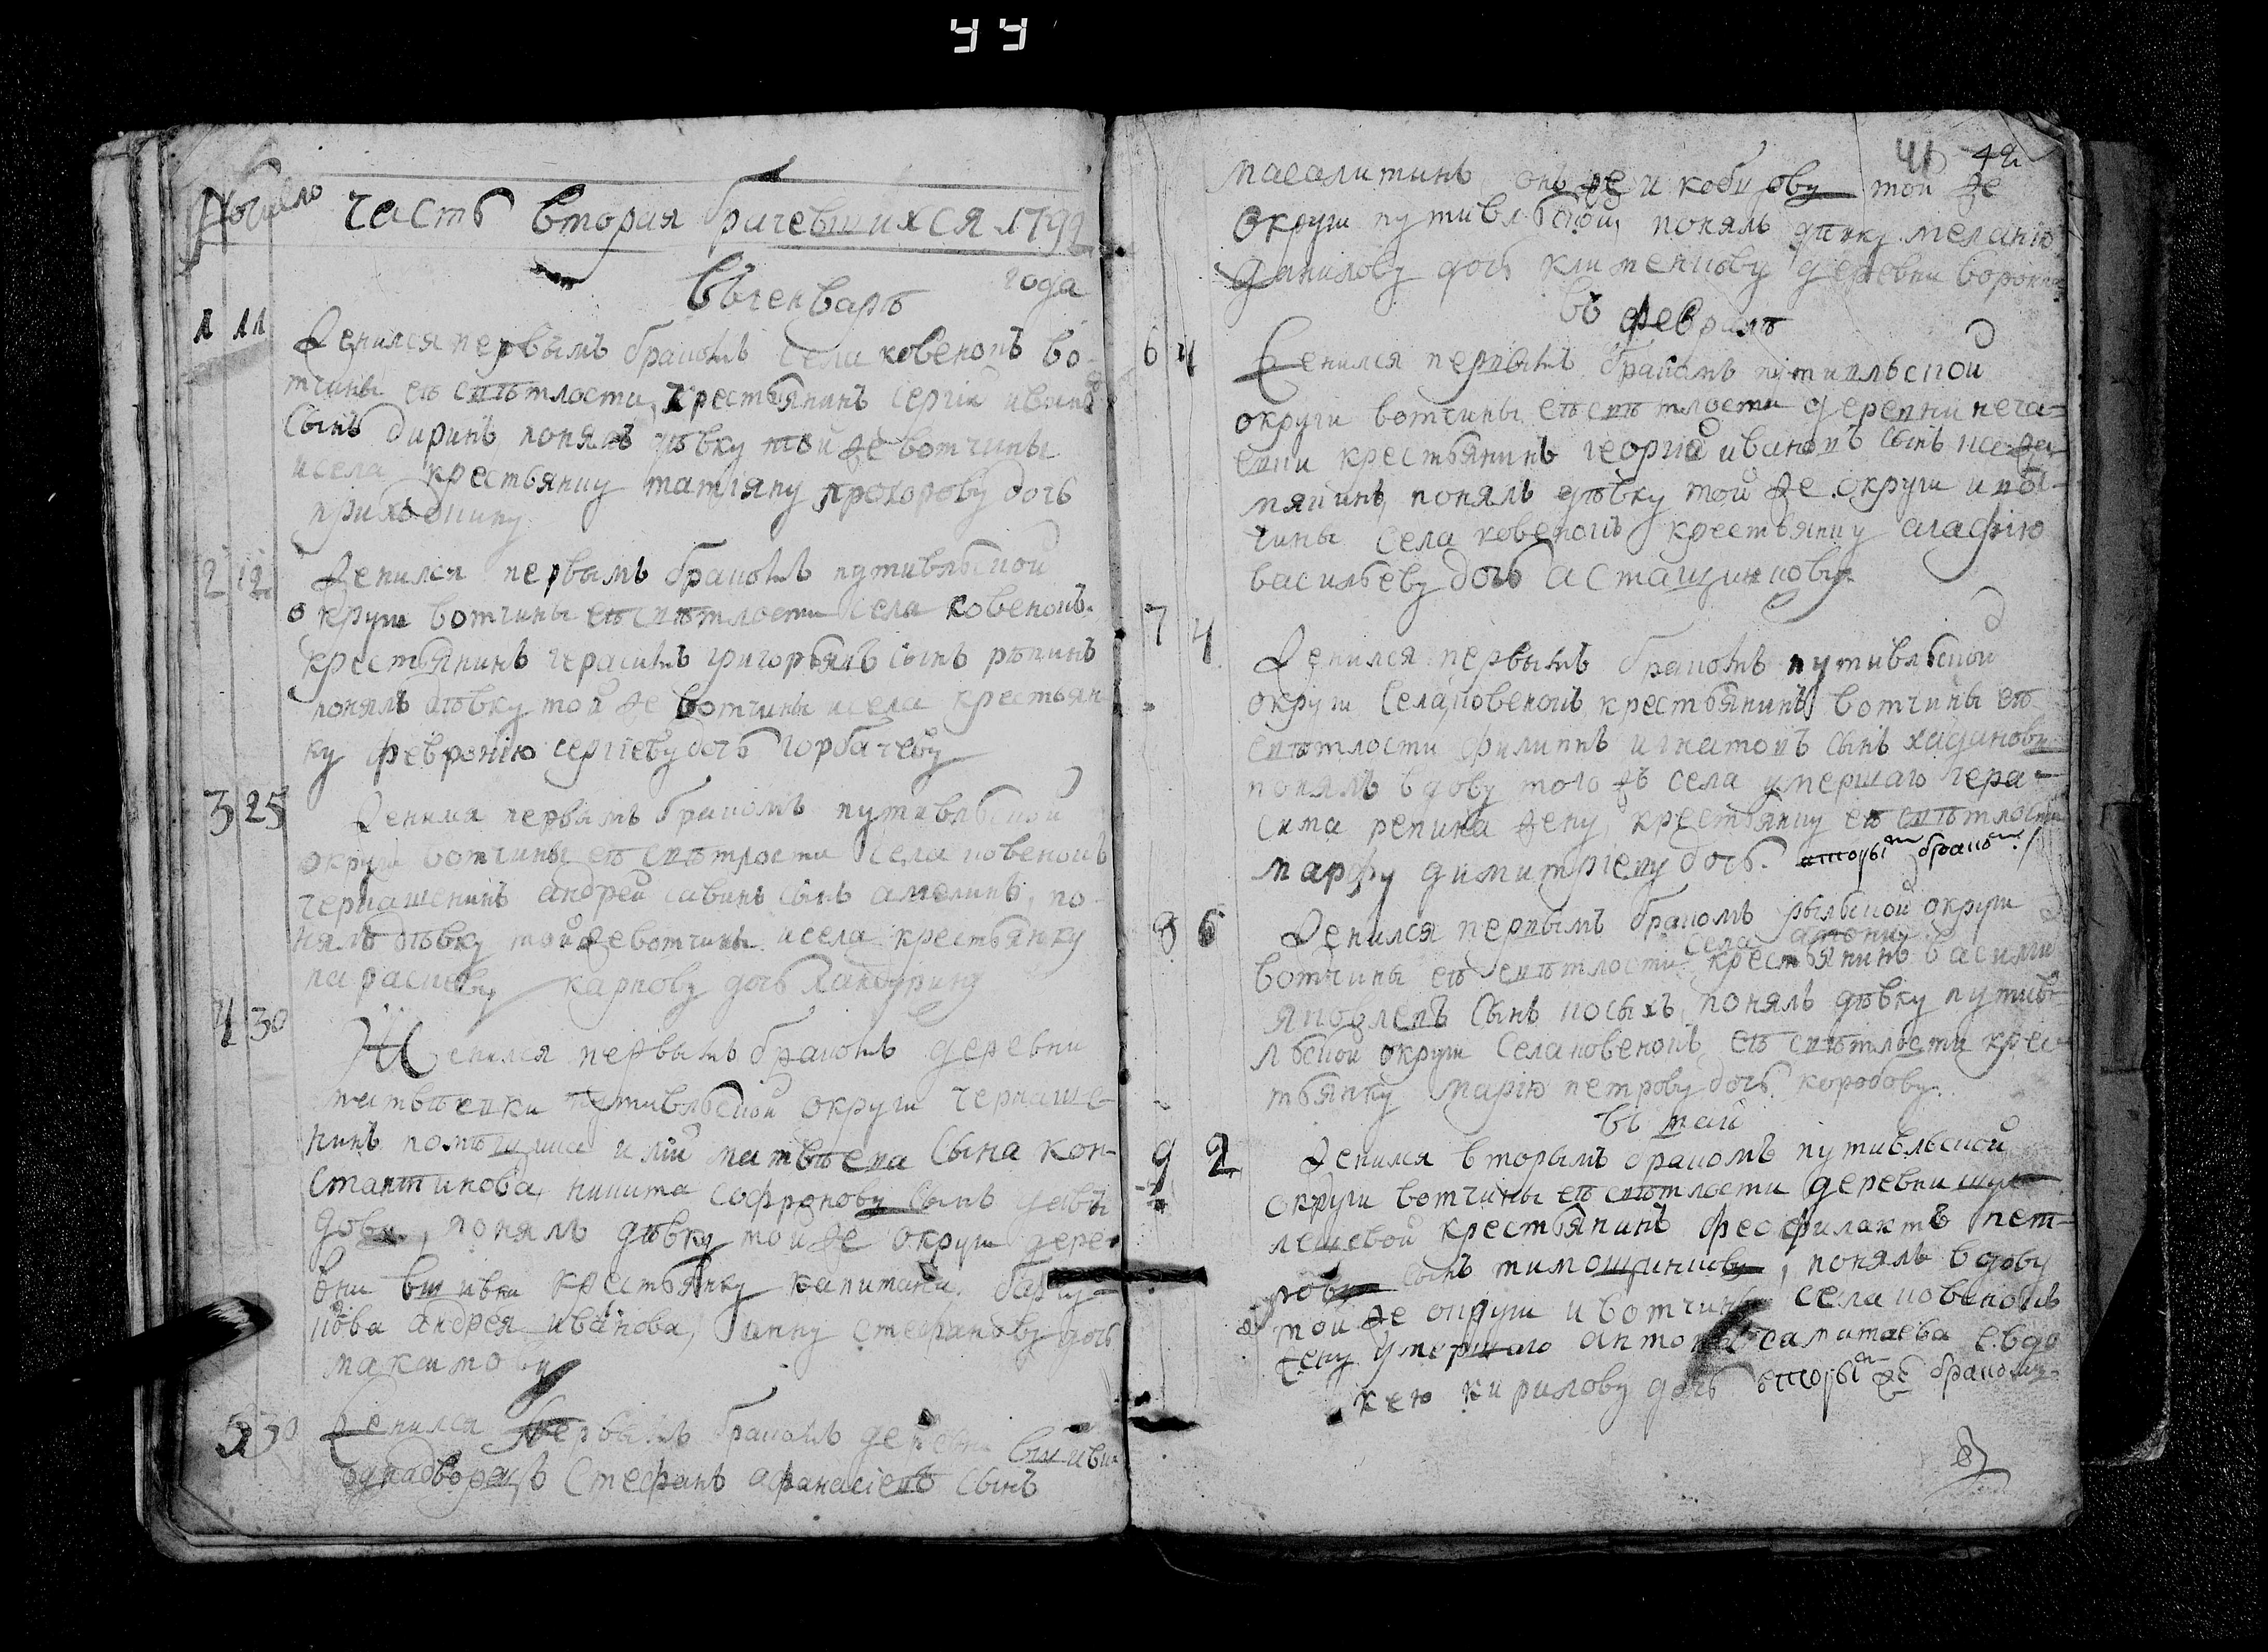 44
41 42
№ число часть вторая бричевшихся 1792
года
въ генварѣ
1 11 Женился первымъ бракомъ села ковенокъ во-
тчины ея свѣтлости, крестьянинъ сергий ивановъ
сынъ диринъ, понялъ дѣвку той же вотчины
и села крестьянку татіяну прохорову дочь
2 12 Женился первымъ бракомъ путивльской
округи вотчины еѣ свѣтлости села ковенокъ
крестьянинъ герасимъ григорьевъ сынъ рѣпинъ
понялъ дѣвку той же вотчины и села крестьян
ку февронію сергіеву дочь горбачеву
3 25 Женился первымъ бракомъ путивльской
округи вотчины еѣ свѣтлости села ковенокъ
черкашенинъ андрей савинъ сынъ амелинъ, по-
нялъ дѣвку той же вотчины и села крестьянку
параскеву карпову дочь
4 30 Женился первымъ бракомъ деревни
матвѣевки путивльской округи черкаше-
нинъ помѣщика матвѣева сына кон-
стантинова, никита софроновъ сынъ
понялъ дѣвку той же округи дере-
вни вшивки крестьянку капитана
андрея иванова, анну стефанову дочь
максимову
5 30 Женился первымъ бракомъ деревни вшивки
однадворецъ стефанъ афанасіевъ сынъ
масалитинъ онъ же и кобцовъ той же
округи путивльской, понялъ дѣвку меланію
данилову дочь климентову деревни
въ февралѣ
6 4 Женился первымъ бракомъ путивльской
округи вотчины еѣ свѣтлости деревни неча-
евки крестьянинъ георгій ивановъ сынъ
понялъ дѣвку той же округи и вот-
чины села ковенокъ крестьянку агафію
васильеву дочь
7 4 Женился первымъ бракомъ путивльской
округи села ковенокъ крестьянинъ вотчины еѣ
свѣтлости филиппъ игнатовъ сынъ хадановъ
понялъ вдову того жъ села умершаго гера-
сима репина жену, крестьянку еѣ свѣтлости
марфу димитріеву дочь. вторымъ бракомъ
8 6 Женился первымъ бракомъ рыльской округи
вотчины еѣ свѣтлости села крестьянинъ василий
яковлевъ сынъ косыхъ, понялъ дѣвку путив-
льской округи села ковенокъ еѣ свѣтлости крес-
тьянку марію петрову дочь коробову.
въ май
9 2 Женился вторымъ бракомъ путивльской
округи вотчины еѣ свѣтлости деревни шу-
лешевой крестьянинъ феофилактъ пет-
ровъ сынъ тимошинковъ, понялъ вдову
той же округи и вотчины села ковенокъ
жену умершаго антона евдо
кею кирилову дочь вторымъ же бракомъ